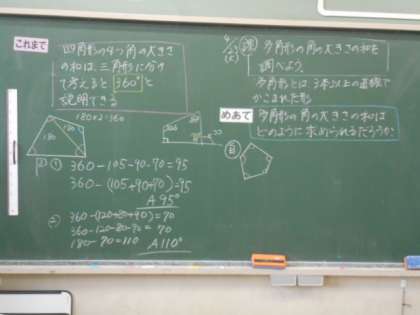 これまで
四角形の4つ角の大きさ
の和は、三角形に分け
て考えると360°と
説明できる
180×2=360
180
180
② ① 360-105-90-70=95
360-(105+90+70)=95
A 95°
360-(120+80+90)=70
360-120-80-90=70
180-70=110 A110°
多角形の角の大きさの和を
調べよう。
多角形とは、3本以上の直線で
かこまれた形
めあて
多角形の角の大きさの和は
どのように求められるだろうか。